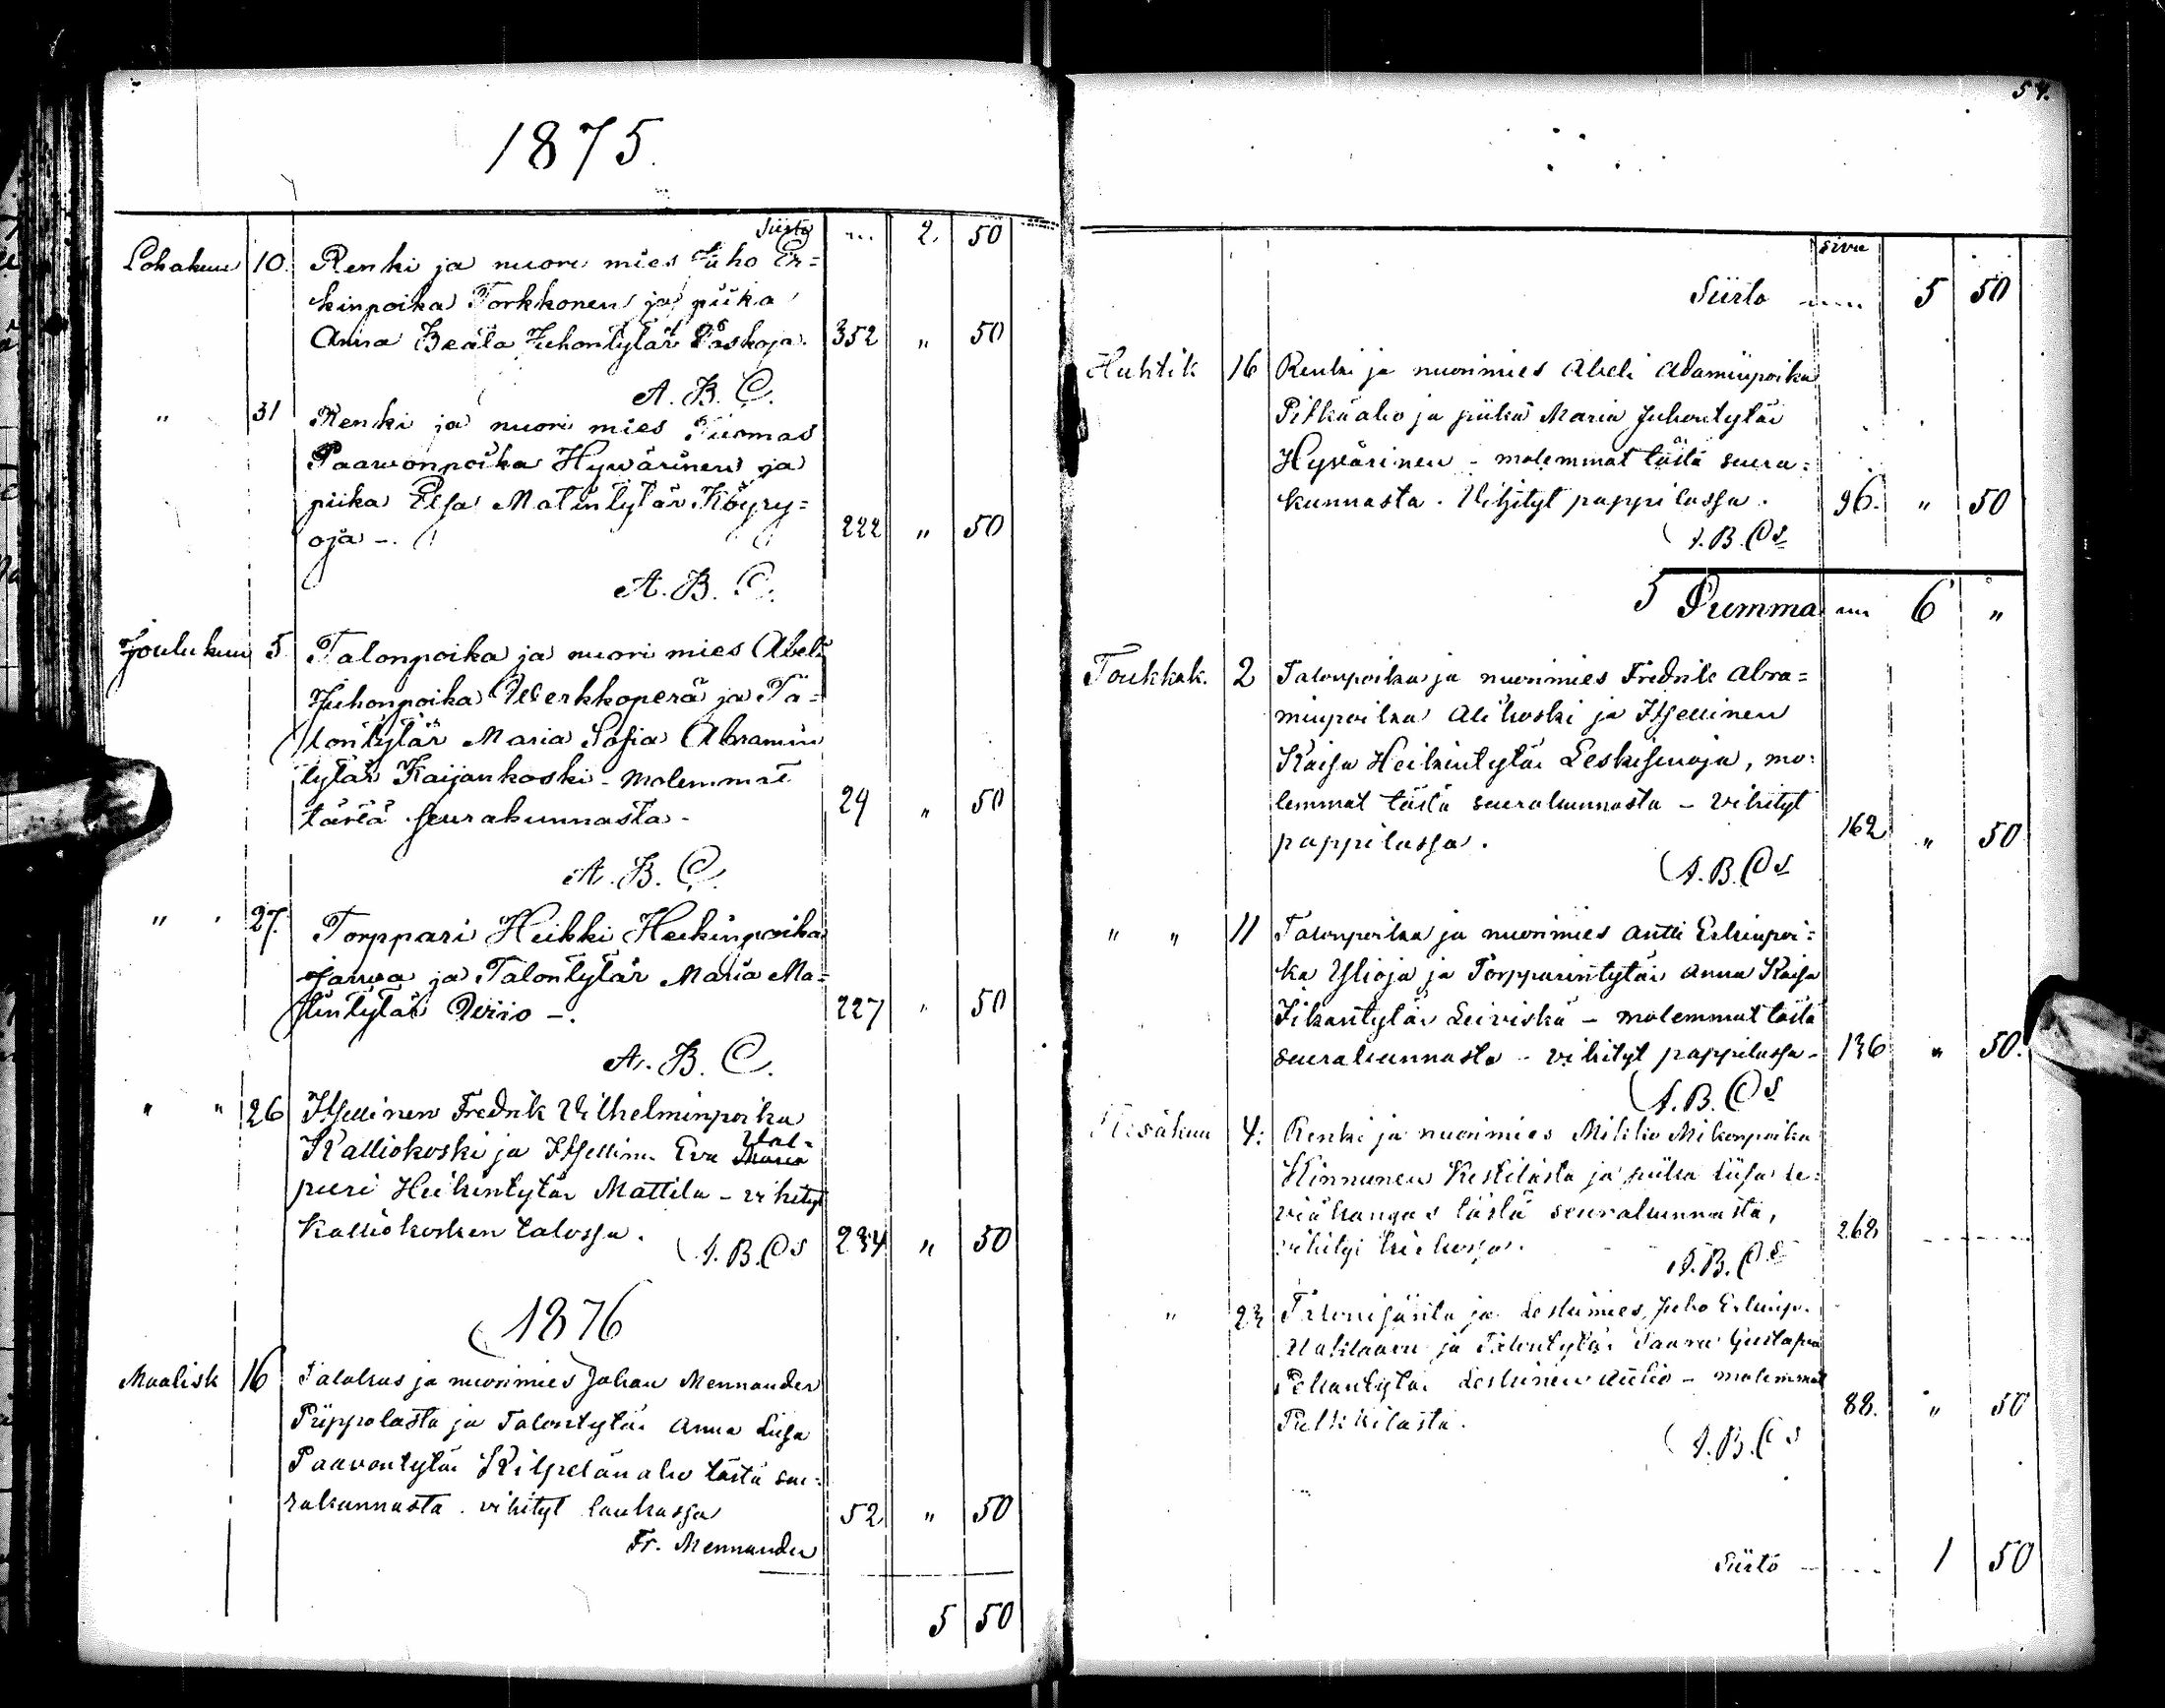 1875.
Siirto " 2. 50
Lokakuu 10. Renki ja nuori mies Juho Er=
kinpoika Torkkonen ja piika
Anna Beata Juhontytär Paskoja. 352 " 50
A. B. C.
" 31 Renki ja nuori mies Tuomas
Paawonpoika Hywärinen ja
piika Elsa Matintytär Köyry=
oja -. 222 " 50
A. B. C.
Joulukuu 5 Talonpoika ja nuori mies Abeli
Juhonpoika Werkkoperä ja Ta=
lontytär Maria Sofia Abramin
tytär Kaijankoski - molemmat
tästä seurakunnasta - 24 " 50
A. B. C.
" 27. Torppari Heikki Heikinpoika
Jarva ja Talontytär Maria Ma=
tintytär 227 " 50
A. B. C.
" " 26 Itsellinen Fredrik Vilhelminpoika
Kalliokoski ja Itsellinen Eva Val=
puri Heikintytär Mattila - vihityt
Kalliokosken talossa. 234 " 50
A. B. Cs
1876
Maalisk 16 Talokas ja nuorimies Johan Mennander
Piippolasta ja Talontytär Anna Liisa
Paavontytär Kilpelänaho tästä seu=
rakunnasta. vihityt
52 " 50
Fr. Mennander
5 50
54.
sivu
Siirto 5 50
Huhtik 16 Renki ja nuorimies Abeli Adaminpoika
Pitkäaho ja piika Maria Juhontytär
Hyvärinen - molemmat tästä seura=
kunnasta. Vihityt pappilassa. 96. " 50
A. B. Cs
Summa 6 "
Toukkok. 2 Talonpoika ja nuorimies Fredrik Abra=
minpoika Alikoski ja Itsellinen
Kaisa Heikintytär Leskisenoja, mo=
lemmat tästä seurakunnasta - vihityt
pappilassa. 162 " 50
A. B. Cs
" " 11 Talonpoika ja nuorimies Antti Erkinpoi=
ka Ylioja ja Torpparintytär Anna Kaisa
Iikantytär Leiviskä - molemmat tästä
seurakunnasta - vihityt pappilassa - 136 " 50.
A. B. Cs
Kesäkuu 4. Renki ja nuorimies Mikko Mikonpoika
Kinnunen Kestilästä ja piika Liisa Le=
viäkangas tästä seurakunnasta,
vihityt kirkossa. 268
A. B. Cs
" 23 Talonisäntä ja Leskimies Juho Erkinp.
ja Talontytär Saara Gustava
Pekantytär - molemmat
Pulkkilasta. 88. " 50
A. B. Cs
Siirto 1 50